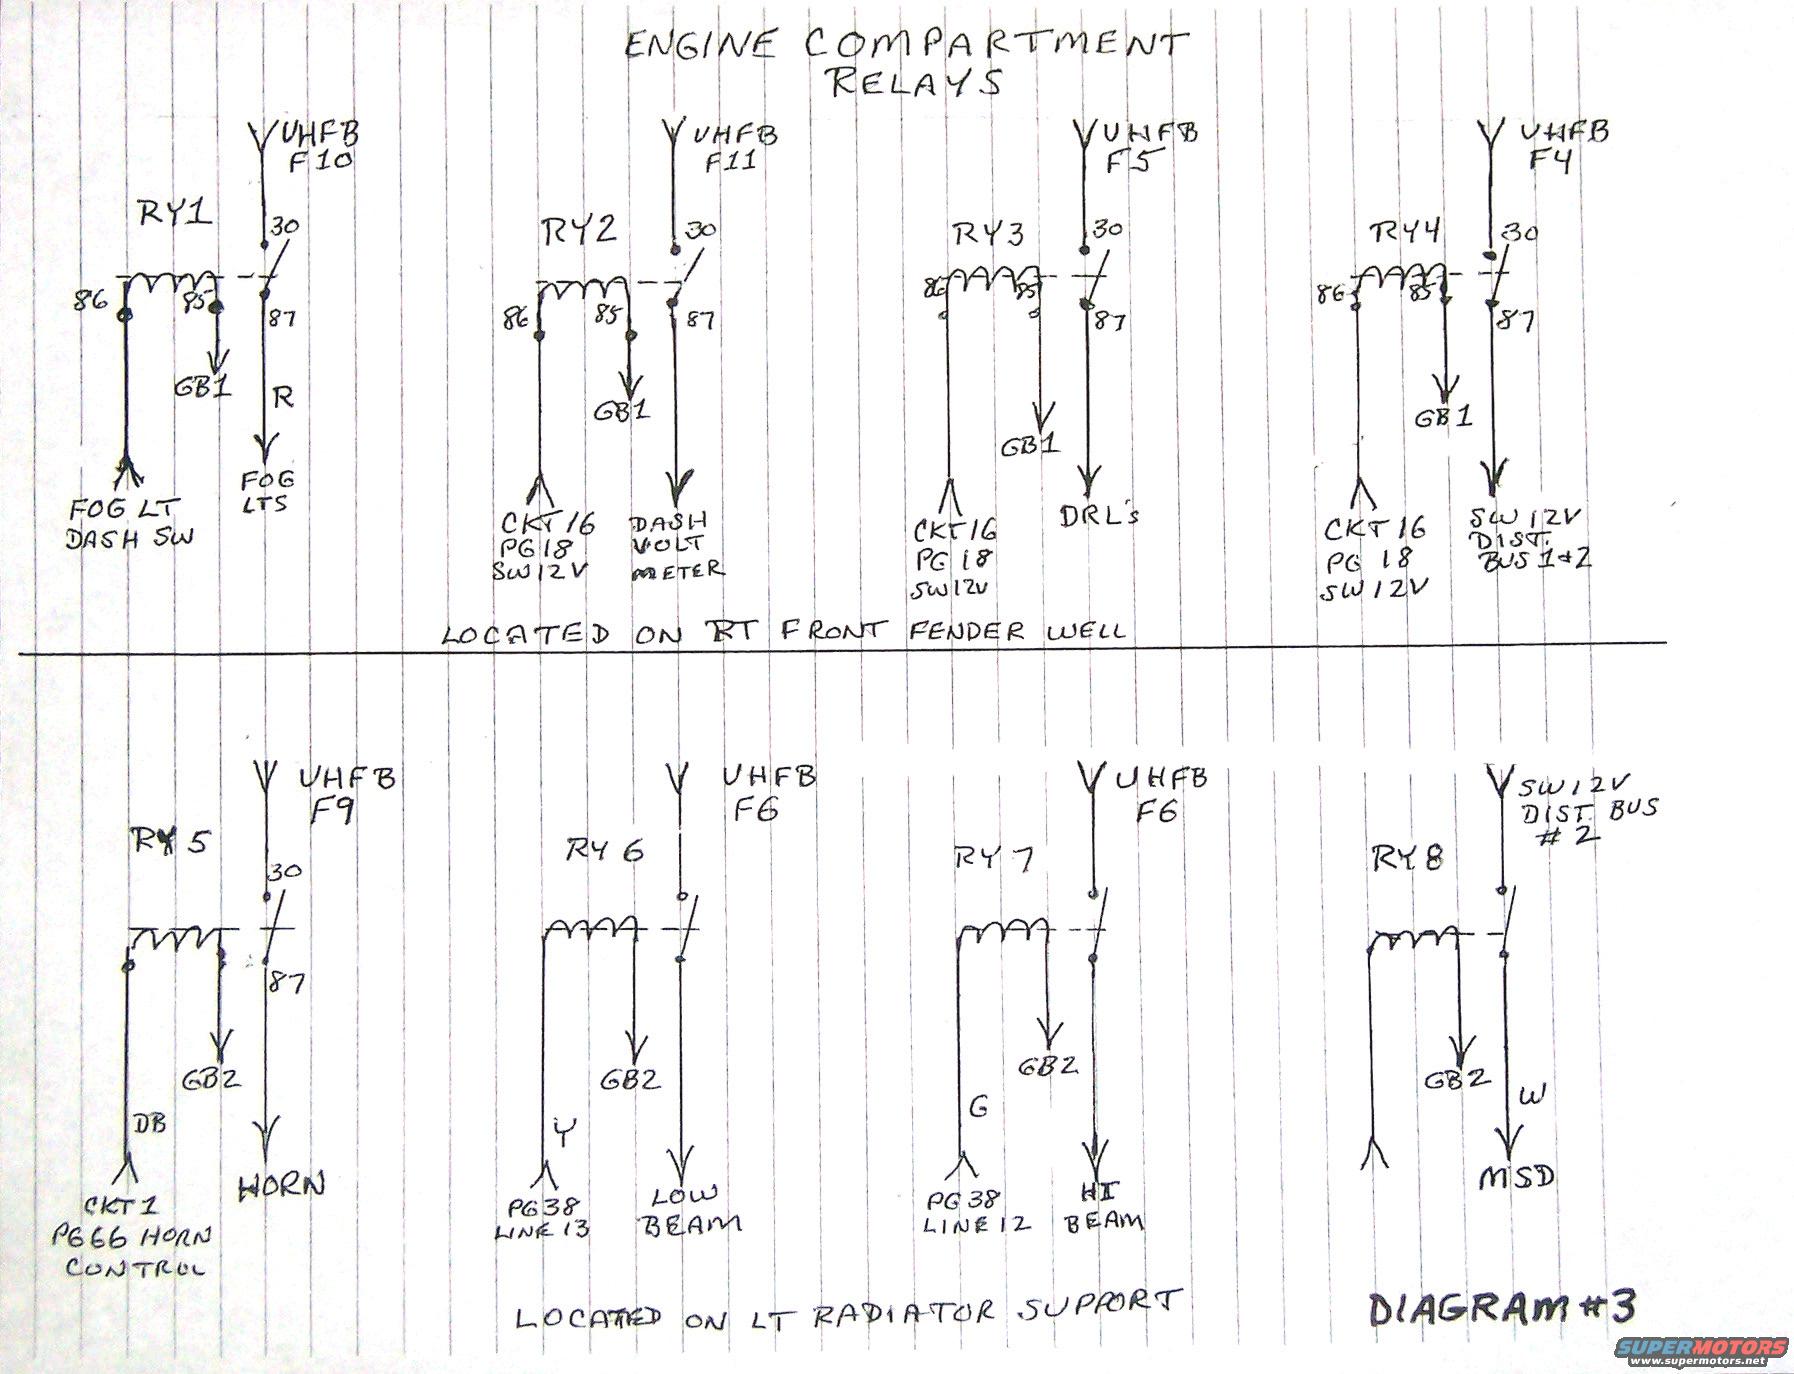 ENGINE COMPARTMENT
RELAYS
UHFB
F10
RY1
30
86
85
87
GB1
R
FOG LT
DASH SW
FOG
LTS
UHFB
F11
RY2
30
86
85
87
GB1
CKT 16
PG 18
SW 12V
DASH
VOLT
METER
UHFB
F5
RY3
30
86
85
87
GB1
CKT 16
PG 18
SW 12V
DRL's
UHFB
F4
RY4
30
86
85
87
GB1
CKT 16
PG 18
SW 12V
SW 12V
DIST.
BUS 1+2
LOCATED ON RT FRONT FENDER WELL
UHFB
F9
RY 5
30
87
GB2
DB
CKT 1
PG 66 HORN
CONTROL
HORN
UHFB
F6
RY 6
GB2
Y
PG 38
LINE 13
LOW
BEAM
UHFB
F6
RY 7
GB2
G
PG 38
LINE 12
HI
BEAM
SW 12V
DIST. BUS
# 2
RY 8
GB2
W
MSD
LOCATED ON LT RADIATOR SUPPORT
DIAGRAM #3
SUPERMOTORS
www.supermotors.net